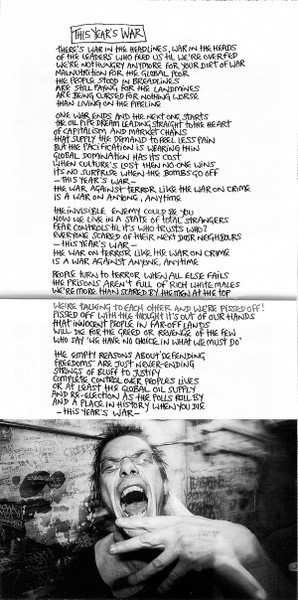 THIS YEAR'S WAR
THERE'S WAR IN THE HEADLINES, WAR IN THE HEADS
OF THE LEADERS WHO FEED US TIL WE'RE OVERFED
WE'RE NOT HUNGRY ANYMORE FOR YOUR DIET OF WAR
MALNUTRITION FOR THE GLOBAL POOR
THE PEOPLE STOOD IN BREADLINES
ARE STILL PAYING FOR THE LANDMINES
ARE BEING CURSED FOR NOTHING WORSE
THAN LIVING ON THE PIPELINE
ONE WAR ENDS AND THE NEXT ONE STARTS
THE OIL PIPE DREAM LEADING STRAIGHT TO THE HEART
OF CAPITALISM AND MARKET CHAINS
THAT SUPPLY THE DEMAND TO FEEL LESS PAIN
BUT THE PACIFICATION IS WEARING THIN
GLOBAL DOMINATION HAS ITS COST
WHEN CULTURE'S LOST THEN NO ONE WINS
ITS NO SURPRISE WHEN THE BOMBS GO OFF
- THIS YEAR'S WAR -
THE WAR AGAINST TERROR LIKE THE WAR ON CRIME
IS A WAR ON ANYONE, ANYTIME
THE INVISIBLE ENEMY COULD BE YOU
NOW WE LIVE IN A STATE OF TOTAL STRANGERS
FEAR CONTROLS TIL IT'S WHO TRUSTS WHO?
EVERYONE SCARED OF THEIR NEXT DOOR NEIGHBOURS
- THIS YEAR'S WAR -
THE WAR ON TERROR, LIKE THE WAR ON CRIME
IS A WAR AGAINST ANYONE, ANYTIME
PEOPLE TURN TO TERROR WHEN ALL ELSE FAILS
THE PRISONS AREN'T FULL OF RICH WHITE MALES
WE'RE MORE THAN SCARED BY THE MEN AT THE TOP
WE'RE TALKING TO EACH OTHER AND WE'RE PISSED OFF!
PISSED OFF WITH THE THOUGHT IT'S OUT OF OUR HANDS
THAT INNOCENT PEOPLE IN FAR-OFF LANDS
WILL DIE FOR THE GREED OR REVENGE OF THE FEW
WHO SAY 'WE HAVE NO CHOICE IN WHAT WE MUST DO'
THE EMPTY REASONS ABOUT 'DEFENDING
FREEDOMS' ARE JUST NEVER-ENDING
STRINGS OF BLUFF TO JUSTIFY
COMPLETE CONTROL OVER PEOPLES LIVES
OR AT LEAST THE GLOBAL OIL SUPPLY
AND RE-ELECTION AS THE POLLS ROLL BY
AND A PLACE IN HISTORY WHEN YOU DIE
- THIS YEAR'S WAR -